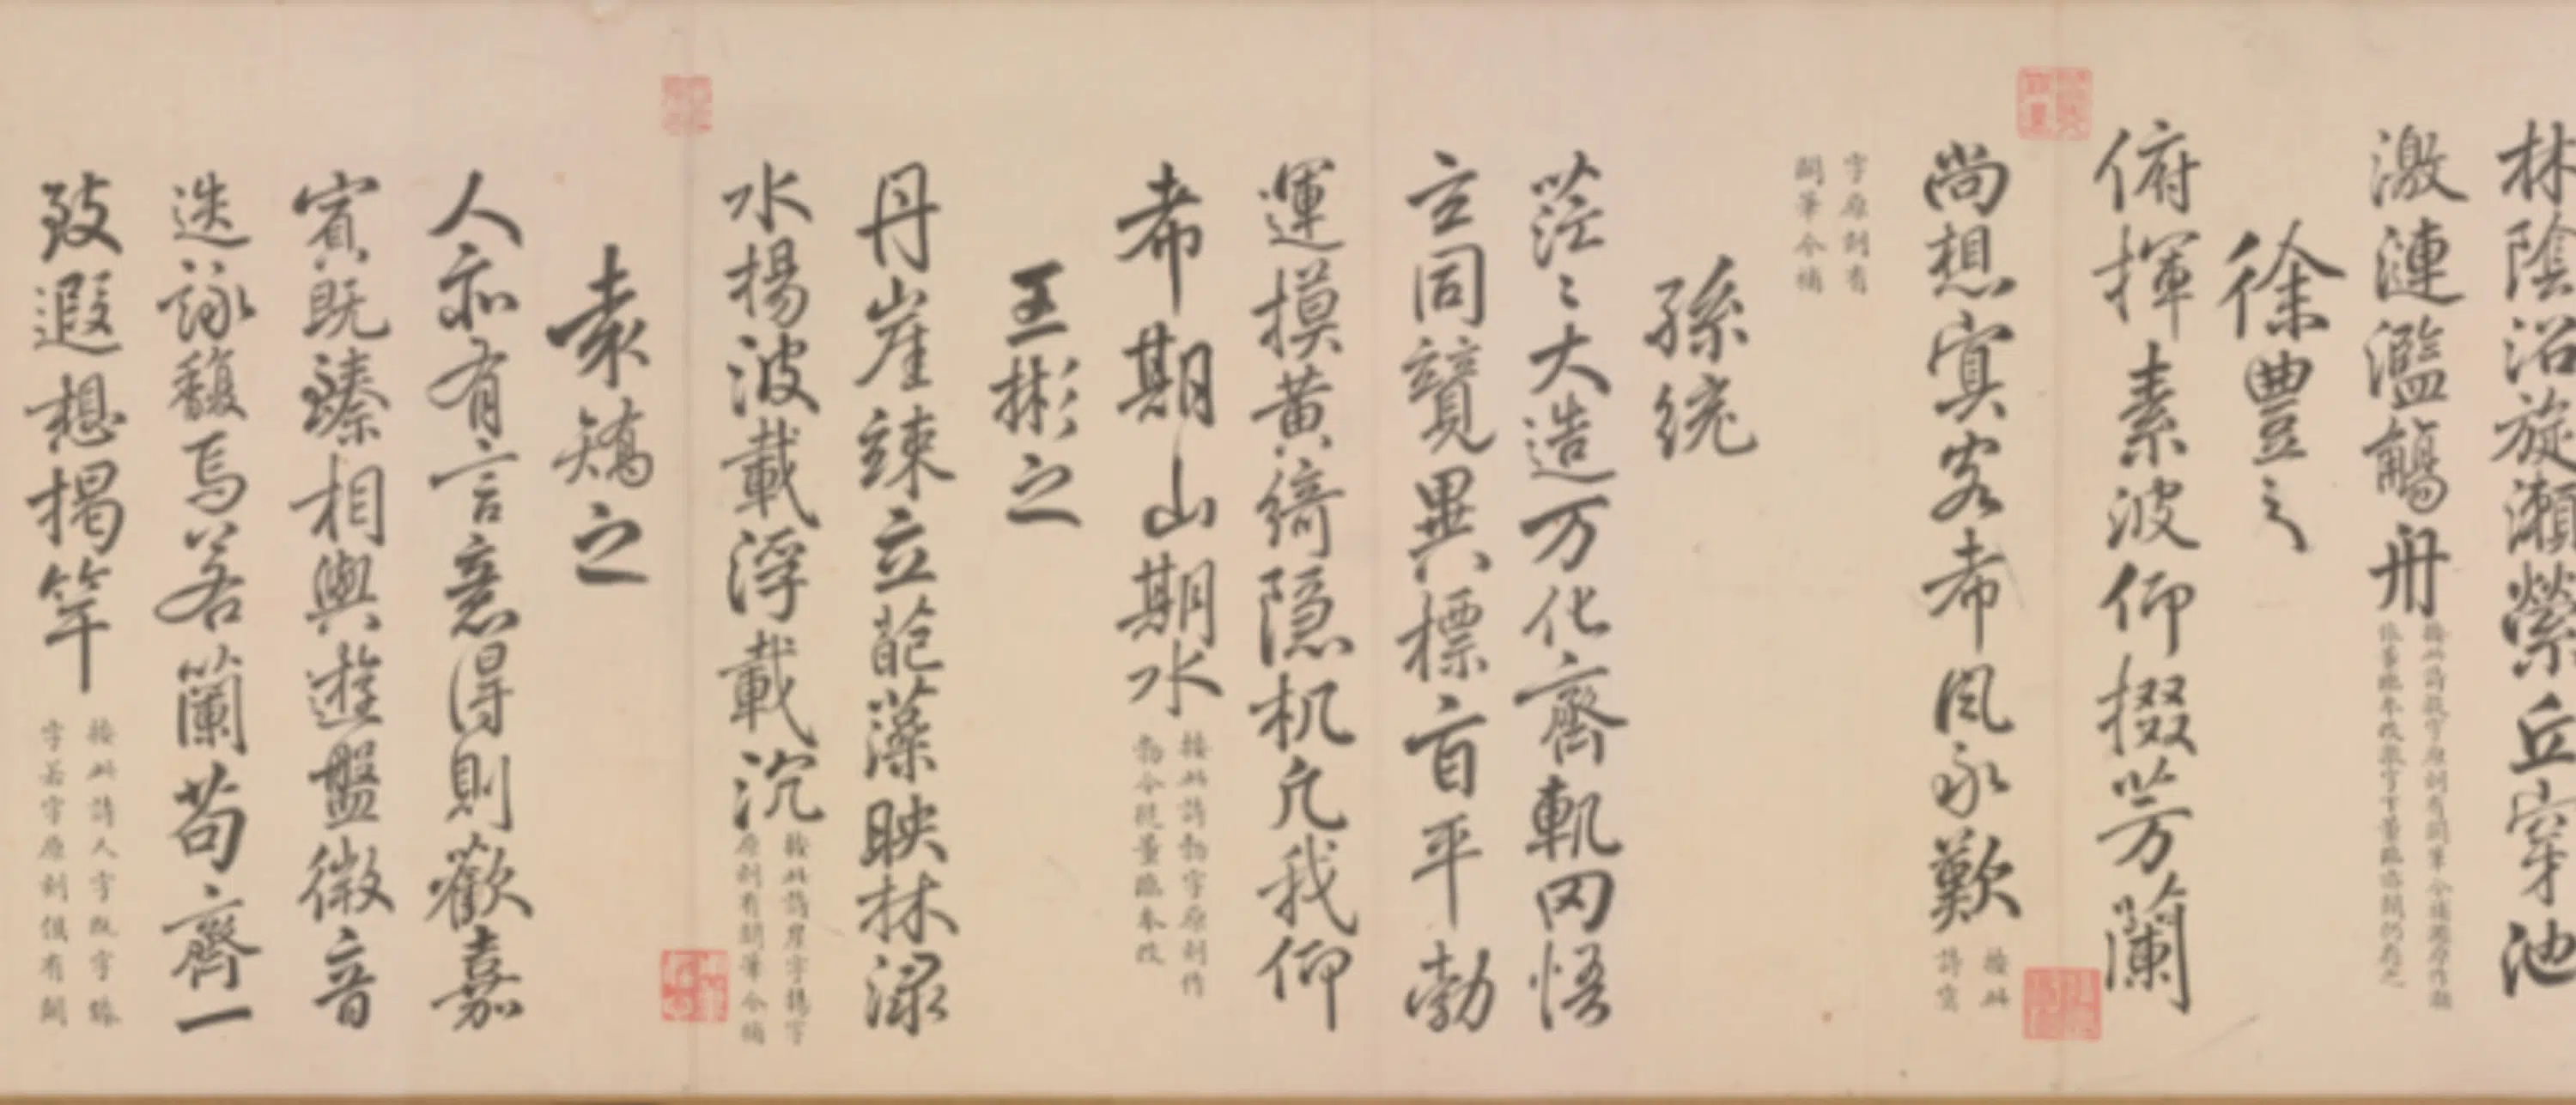 林陰沿旋瀨縈丘穿池
激漣濫觴舟
按此詩激字原刻有闕筆今補
徐豐之
俯揮素波仰掇芳蘭
尚想冥客希風永歎
按此
詩冥
字原刻有
闕筆今補
孫統
茫〻大造万化齊軌罔悟
玄同競異標旨平勃
運摸黃綺隱机凢我仰
希期山期水
按此詩勃字原刻作
勃今從董臨本改
王彬之
丹崖竦立葩藻映林渌
水揚波載浮載沉
按此詩崖字揚字
原刻有闕筆今補
袁矯之
人亦有言意得則歡嘉
賓既臻相與遊盤微音
迭詠馥焉若蘭苟齊一
致遐想揭竿
按此詩人字既字臻
字若字原刻俱有闕